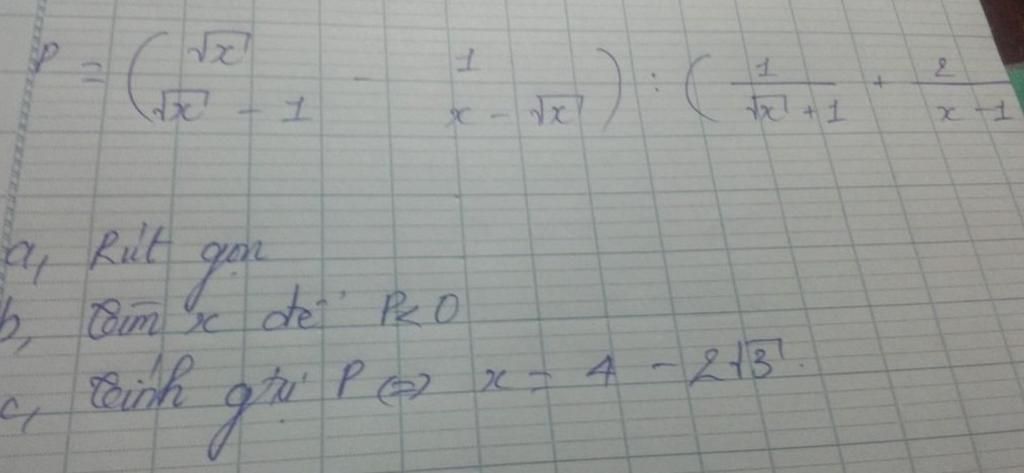 P = (√x / (√x - 1) - 1 / (x - √x)) : (1 / (√x + 1) + 2 / (x - 1)
a, Rút gọn
b, Tìm x để P < 0
c, Tính gtrị P <=> x = 4 - 2√3.